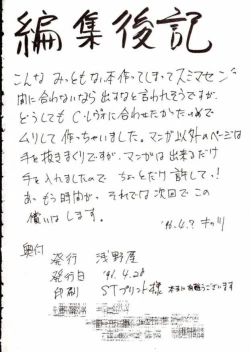 編集後記
こんな みっともない本作ってしまってスミマセン
間に合わないなら出すなと言われそうですが、
どうしても C・レヴォに合わせたかったので
ムリして作っちゃいました。マンガ以外のページは
手を抜きまくりですが、マンガは出来るだけ
手を入れましたので ちょっとだけ許して。!
あ もう時間が、それでは次回でこの
償いは します。
奥付
発行 浅野屋
発行日
印刷 STプリント様 本当に有難うございます